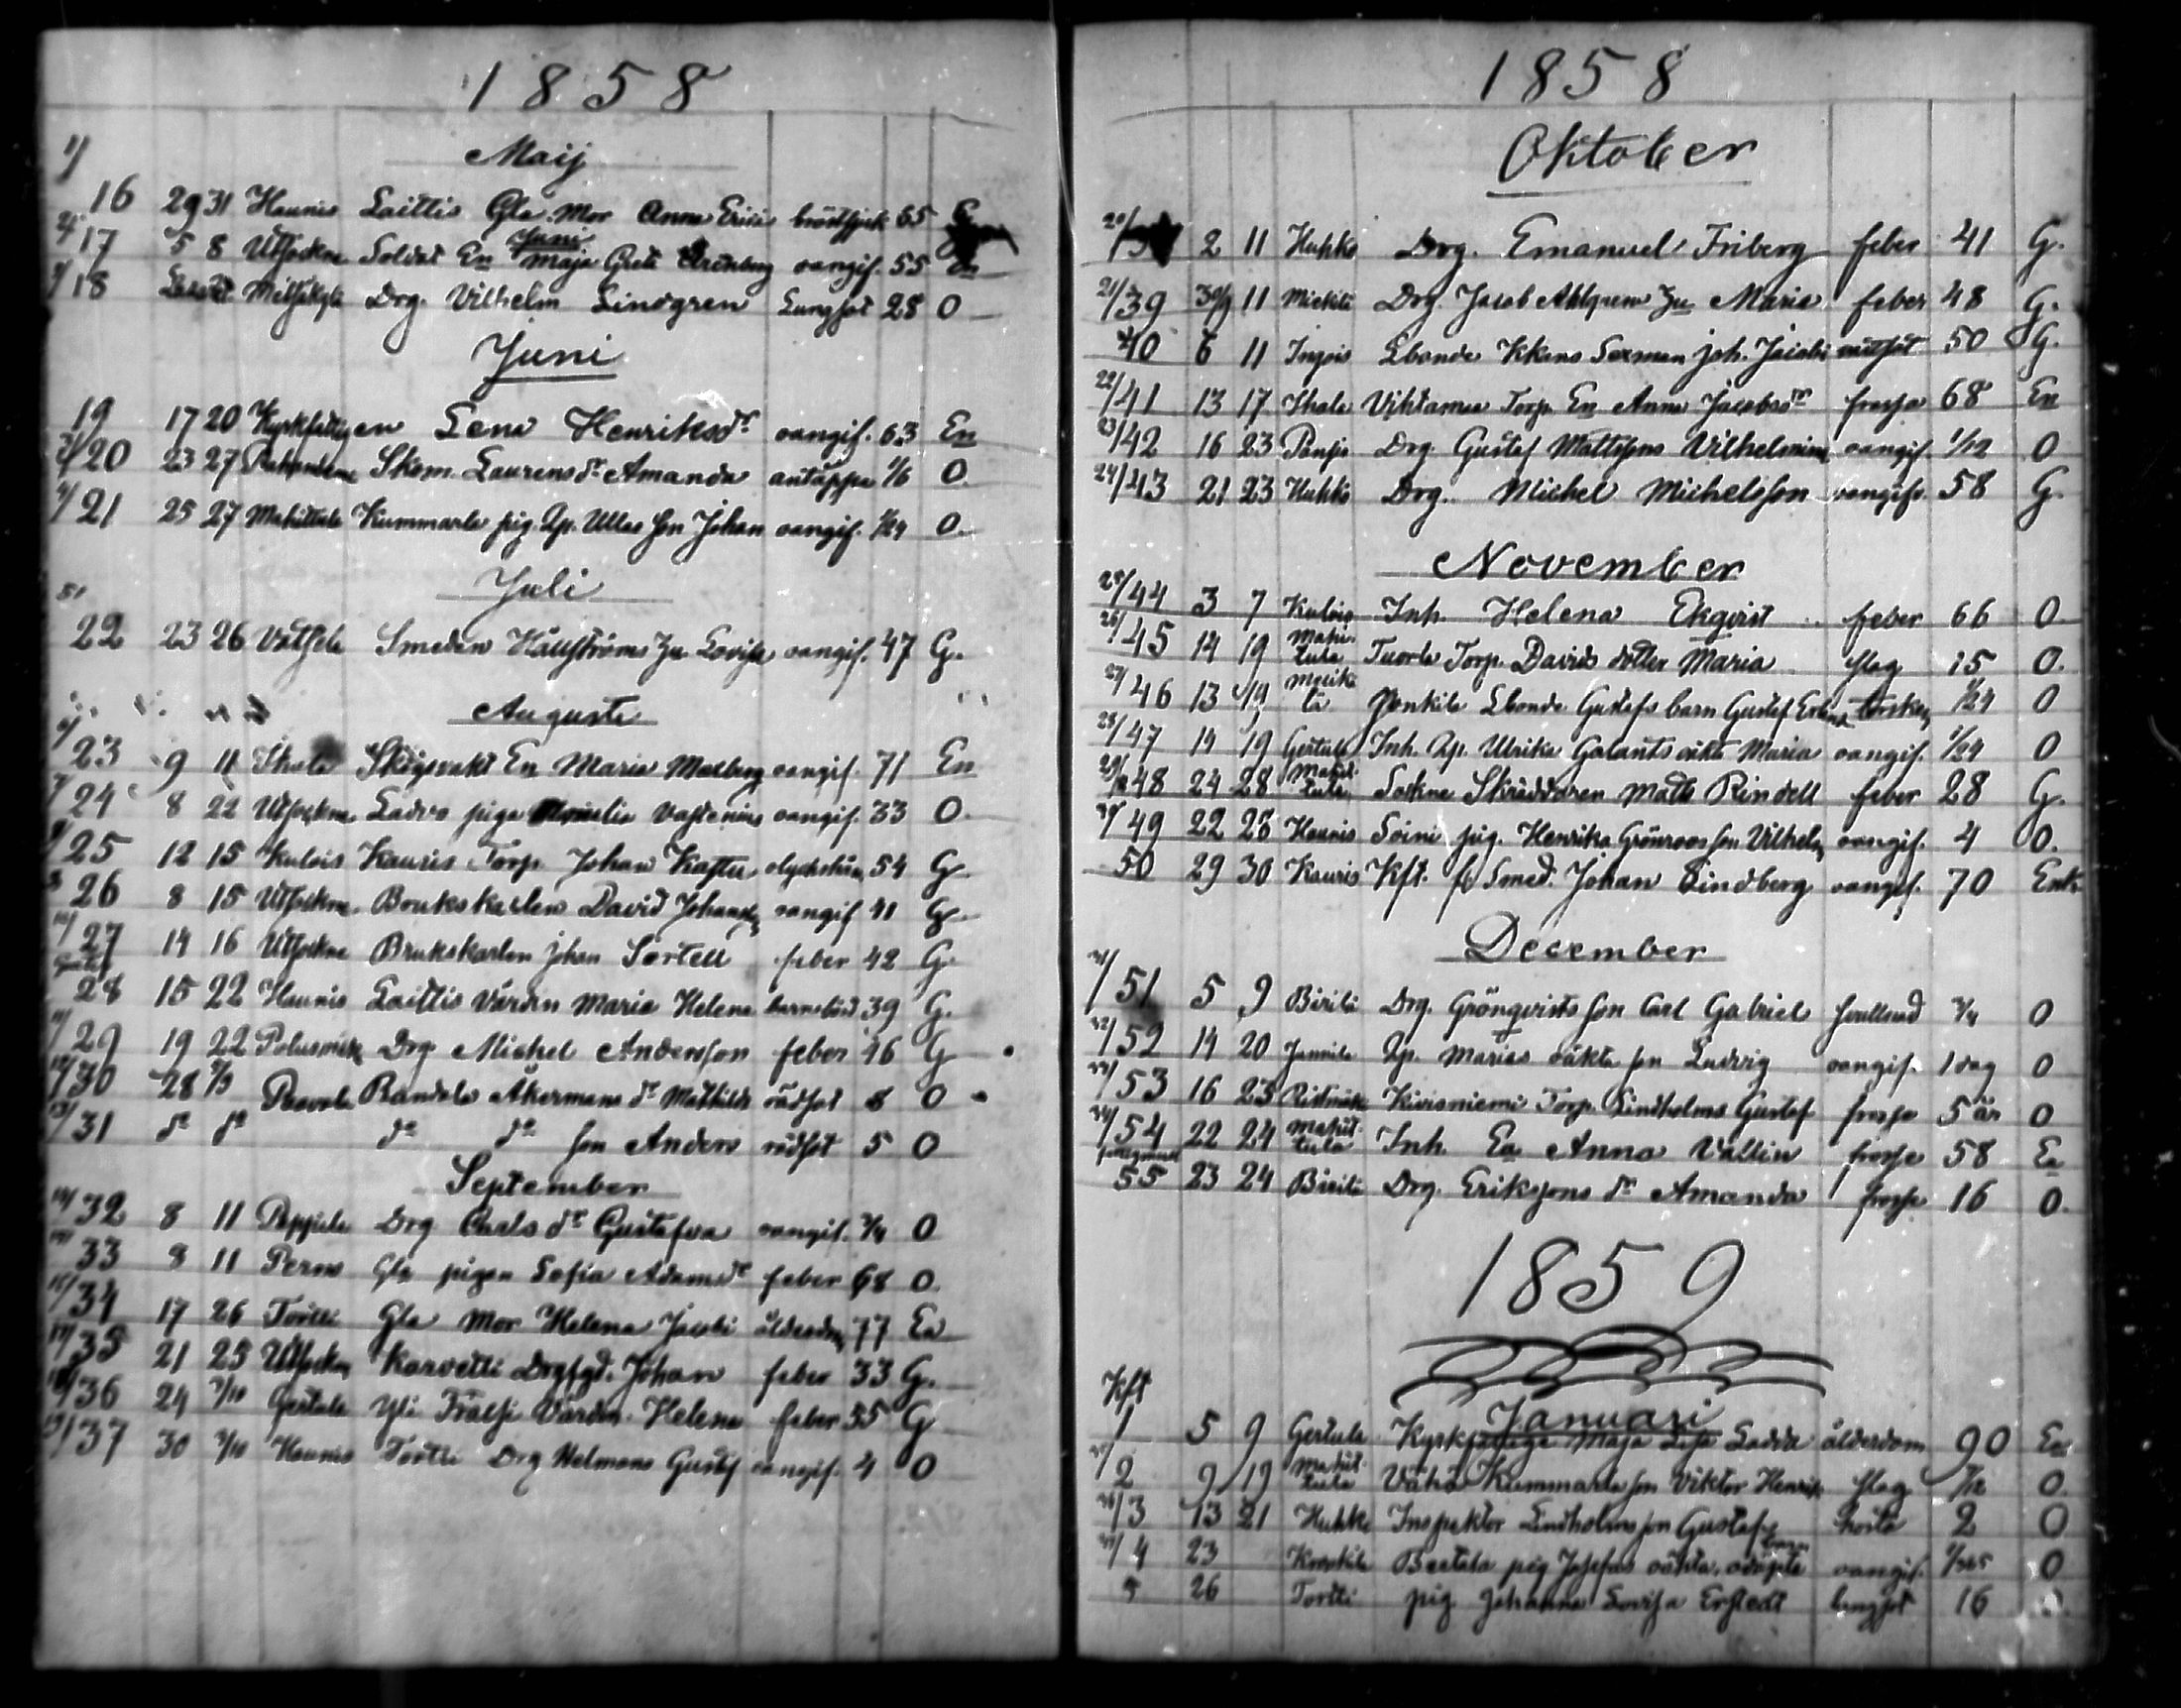 1858
1/ Maij
16 29 31 Haunis Laittis Gla. Mor Anna Erici bröstsjuk 65
Juni
2/ 17 5 8 Utsockne Soldat En Maja Greta oangif. 55 En
3/ 18 Drg. Vilhelm Lindgren Lungsot 28 O
Juni
19 17 20 Kyrkfattigen Lena Henriksdr oangif. 63 En
3/ 20 23 27 Skom. Laurens dr Amanda antäppa 1/6 O.
4/ 21 25 27 Mahittula Kummarla pig. Up. Ullas son Johan oangif. 1/24 O.
Juli
5/
22 23 26 Smeden hu Lovisa oangif. 47 G.
Augusti
6/ 23 9 11 Ihala Skogsvakt En Maria Malberg oangif. 71 En
7/ 24 8 22 Utsockne Ladvo piga Vastenius oangif. 33 O.
8/ 25 12 15 Kulois Kauris Torp. Johan Kastu 54 G.
9 26 8 15 Utsockne Brukskarlen David Johansson oangif 41 G.
10/ 27 14 16 Utsockne Brukskarlen Johan Sortell feber 42 G.
28 15 22 Haunis Laittis Värdin Maria Helena barnsbörd 39 G.
11/ 29 19 22 Polusmäki Drg Michel Andersson feber 46 G
12/ 30 28 Paavola Randala Åkermans dr Mathilda rödsot 8 O
13/ 31 do do do do son Anders rödsot 5 O
September
14/ 32 8 11 Drg Carls dr Gustafva oangif. 3/4 O
15/ 33 8 11 Perno Gla pigan Sofia Adamsdr feber 68 O.
16/ 34 17 26 Tortti Gla Mor Helena Jacobi ålderdom 77 En
17/ 35 21 25 Utsockn Karvetti Drgfgd. Johan feber 33 G.
18/ 36 24 3/10 Gertula Yli Värdin. Helena feber 55 G
19/ 37 30 3/10 Haunis Tortti Drg Helmans Gustaf oangif. 4 O
1858
Oktober
20/ 2 11 Huhko Drg. Emanuel Friberg feber 41 G.
21/ 39 30/9 11 Miekila Drg. Jacob Ahlgren hu Maria feber 48 G.
40 6 11 Ingois Lbonde Kkans Sexman Joh. Jacobi 50 G.
22/ 41 13 17 Ihala Vihtamaa Torp. En Anna Jacobsdr frossa 68 En
23/ 42 16 23 Pansio Drg. Gustaf Mattssons Vilhelmina oangif. 1/12 O
24/ 43 21 23 Huhko Drg. Michel Michelsson oangif. 58 G.
November
25/ 44 3 7 Kulois Inh. Helena Ekqvist feber 66 O.
26/ 45 14 19 Mahittula Tuorla Torp. Davids dotter Maria slag 15 O.
27/ 46 13 19 Miekila Lbonde Gustafs barn Gustaf torsken 1/24 O
28/ 47 14 19 Gertula Inh. Up. Ulrika Galants oäkta Maria oangif. 1/24 O
29/ 48 24 28 Mahittula Sockne Skräddaren Matts Rindell feber 28 G.
30/ 49 22 28 Haunis Soini pig. Henrika Grönroos son Vilhelm oangif. 4 O.
50 29 30 Kauris Kft. fd Smed. Johan Lindberg oangif. 70 Enk.
December
31/ 51 5 9 Viiriä Drg. Grönqvists son Carl Gabriel 3/4 O
32/ 52 14 20 Jannila Up. Marias oäkta son Ludvig oangif. 1 dag O
33/ 53 16 23 Kiviniemi Torp. Lindholms Gustaf frossa 5 år O
34/ 54 22 24 Mahittula Inh. En Anna Vallin frossa 58 En
55 23 24 Drg. Erikssons dr Amanda frossa 16 O.
1859
Kft Januari
1 5 9 Gertula Kyrkfattiga Maja Lisa Ladda ålderdom 90 En
35/ 2 9 19 Mahittula Vähä Kummarla son Viktor Henrik slag O.
36/ 3 13 21 Huhko Inspektor Lindholms son Gustaf hosta 2 O
37/ 4 23 Krookila Bertala pig Josefas oäkta, odöpta barn oangif. 1/365 O
5 26 Tortti pig Johanna Lovisa Erstedt lungsot 16